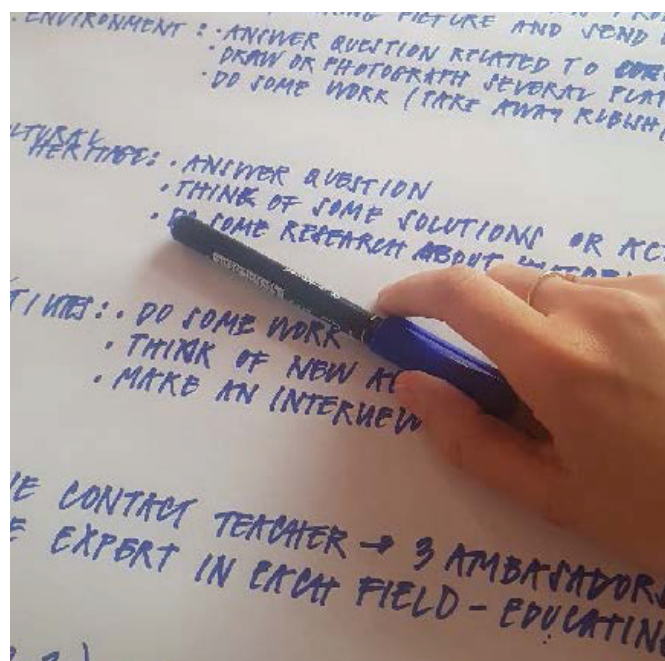 PICTURE AND SEND
ENVIRONMENT: · ANSWER QUESTION RELATED TO
· DRAW OR PHOTOGRAPH SEVERAL
· DO SOME WORK (TAKE AWAY RUBISH
HERITAGE: · ANSWER QUESTION
· THINK OF SOME SOLUTIONS OR
· DO SOME RESEARCH ABOUT
· DO SOME WORK
· THINK OF NEW
· MAKE AN INTERVIEW
CONTACT TEACHER → 3 AMBASADORS
EXPERT IN EACH FIELD - EDUCATIN